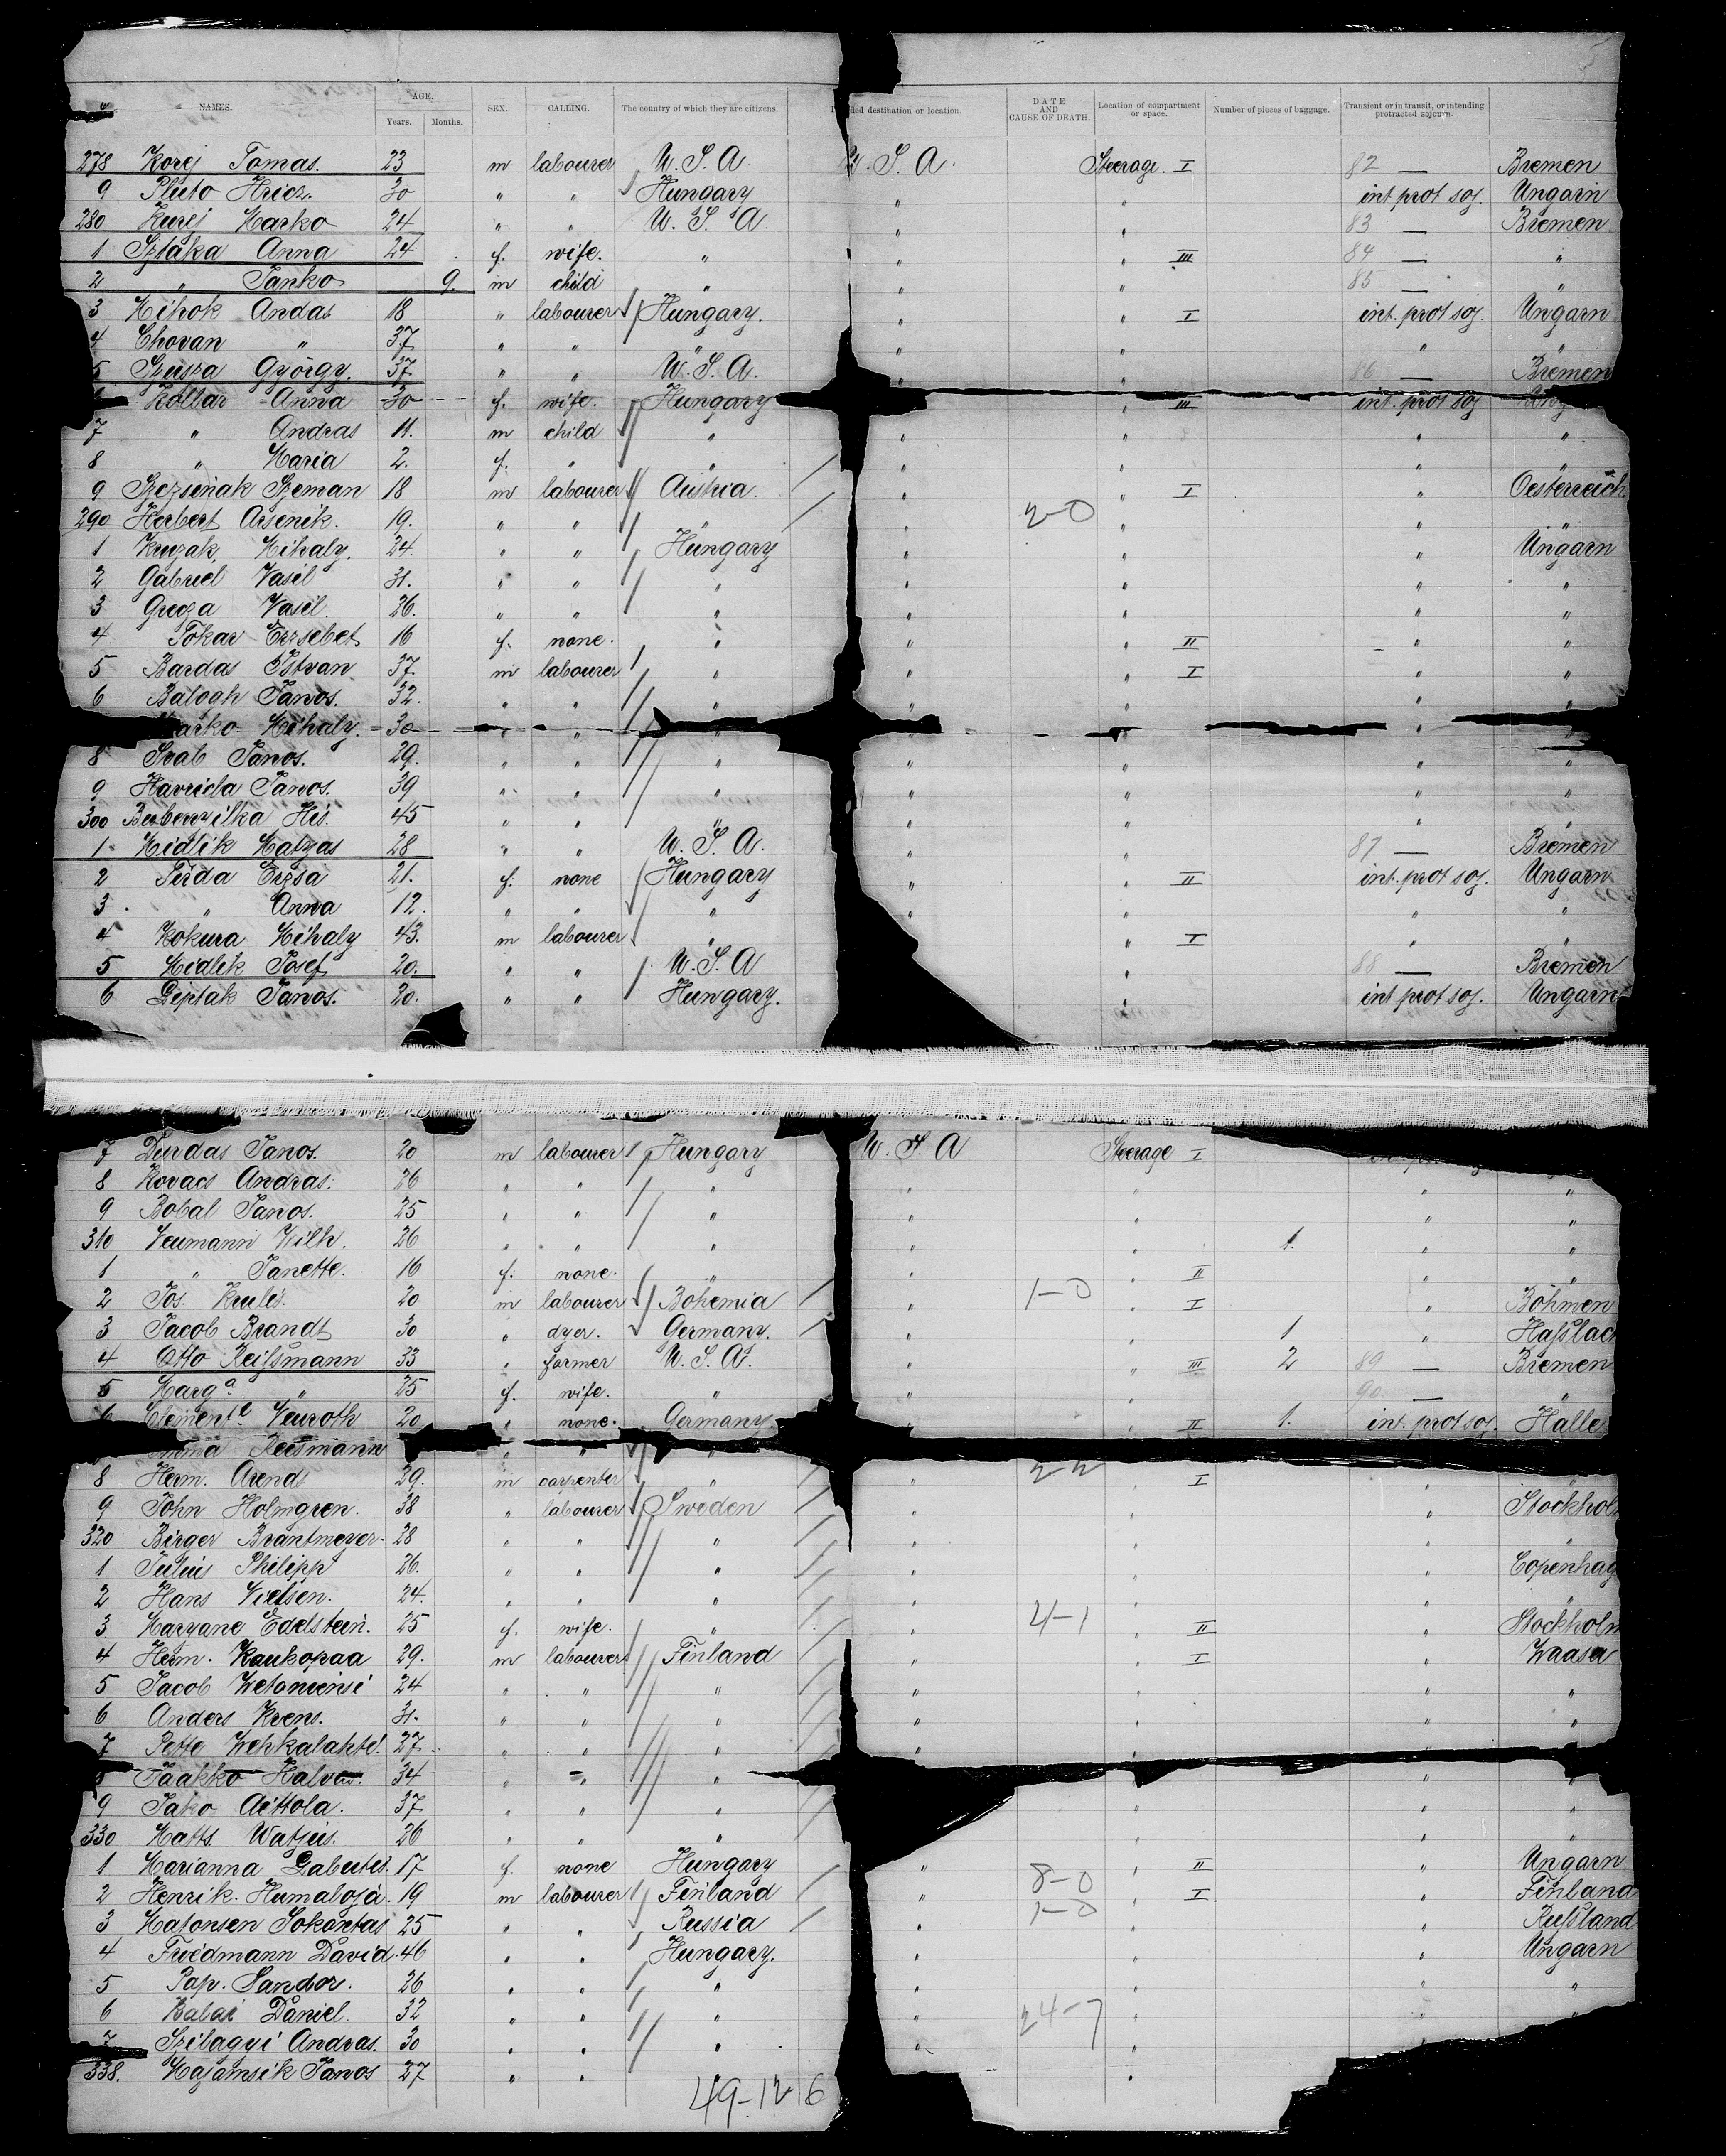 NAMES. AGE. Years. Months. SEX. CALLING. The country of which they are citizens. ded destination or location. DATE AND CAUSE OF DEATH. Location of compartment or space. Number of pieces of baggage. Transient or in transit, or intending protracted sojourn.
278 Korej Tomas. 23 m labourer U. S. A. U. S. A. Steerage. I 82 — Bremen
9 Pluto Hricz. 30 " " Hungary " " int prot soj. Ungarn
280 Kurej Marko 24 " " U. S. A. " " 83 — Bremen
1 Sztaka Anna 24 f. wife. " " " III 84 — "
2 " Janko 9. m child " " " 85 — "
3 Mihok Andas 18 " labourer Hungary. " " I int. prot soj. Ungarn
4 Chovan " 37 " " " " " " "
5 Szusza György. 37 " " U. S. A. " " 86 — Bremen
Kollar Anna 30 f. wife. Hungary " III int. prot soj
7 " Andras 11. m child " " " " "
8 " Maria 2. f. " " " " " "
9 Szezsinak Szeman 18 m labourer Austria. " " I " Oesterreich
290 Herbert Arsenik. 19. " " " " 2-0 " " "
1 Kuczak Mihaly. 24. " " Hungary " " " Ungarn
2 Gabriel Vasil 31. " " " " " " "
3 Gucza Vasil 26. " " " " " " "
4 Tokar Erzsebet 16 f. none. " " " II " "
5 Bardas Istvan 37 m labourer " " " I " "
6 Balogh Janos. 32. " " " " " " "
arko Mihaly. 30 " " "
8 Svab Janos. 29. " " " " " " "
9 Havrida Janos. 39 " " " " " " "
300 Buberwilka His. 45 " " " " " " "
1 Midlik Matyas 28 " " U. S. A. " " 87 — Bremen
2 Tirda Erzsa 21. f. none Hungary " " II int. prot soj. Ungarn
3 " Anna 12. " " " " " "
4 Kokura Mihaly 43. m labourer " " I " "
5 Midlik Josef 20. " " U. S. A " 88 — Bremen
6 Liptak Janos. 20. " " Hungary. " int prot soj. Ungarn
7 Durdas Janos. 20 m labourer Hungary U. S. A Steerage I
8 Kovacs Andras. 26 " " " " " "
9 Bobal Janos. 25 " " " " " " "
310 Neumann Wilh. 26 " " " " " 1. " "
1 " Janette. 16 f. none. " " " II " "
2 Jos. Krulis. 20 m labourer Bohemia " 1-0 " I " Böhmen
3 Jacob Brandt 30 " dyer. Germany. " " 1 " Haßlac
4 Otto Reißmann 33 " farmer U. S. A. " " III 2 89 — Bremen
5 Marg.a " 25 f. wife. " " 90. — "
6 Clement.e Neuroth 20 " none. Germany. " II 1. int. prot soj. Halle
Reesmann " " "
8 Herm. Arends 29. m carpenter " " 2-2 " I " "
9 John Holmgren. 38 " labourer Sweden " " " Stockhol
320 Birger Brantmeyer. 28 " " " " " " "
1 Julius Philipp 26. " " " " " " Copenhag
2 Hans Nielsen. 24. " " " " " " "
3 Maryane Edelstein. 25 f. wife. " " 4-1 " II " Stockholm
4 Herm. Kaukopaa 29. m labourer Finland " " I " Waasa
5 Jacob Wetoniemi 24 " " " " " " "
6 Anders Kvens. 31. " " " " " " "
7 Pette Wehkalahti. 27 " " " " " " "
Jaakko Halvas. 34 " " " " "
9 Jako Aittola. 37 " " " " " "
330 Matts. Watjus. 26 " " " " " "
1 Marianna Gabutis. 17 f. none Hungary " " II " Ungarn
2 Henrik. Humaloja. 19 m labourer Finland " 8-0 " I " Finland
3 Matonsen Sokontas 25 " " Russia " 1-0 " " Rußland
4 Friedmann David. 46 " " Hungary. " " " Ungarn
5 Pap. Sandor. 26 " " " " " " "
6 Balai Daniel. 32 " " " " 24-7 " " "
7 Szilagyi Andras. 30 " " " " "
338. Majamsik Janos 27 " " " "
49-12 6